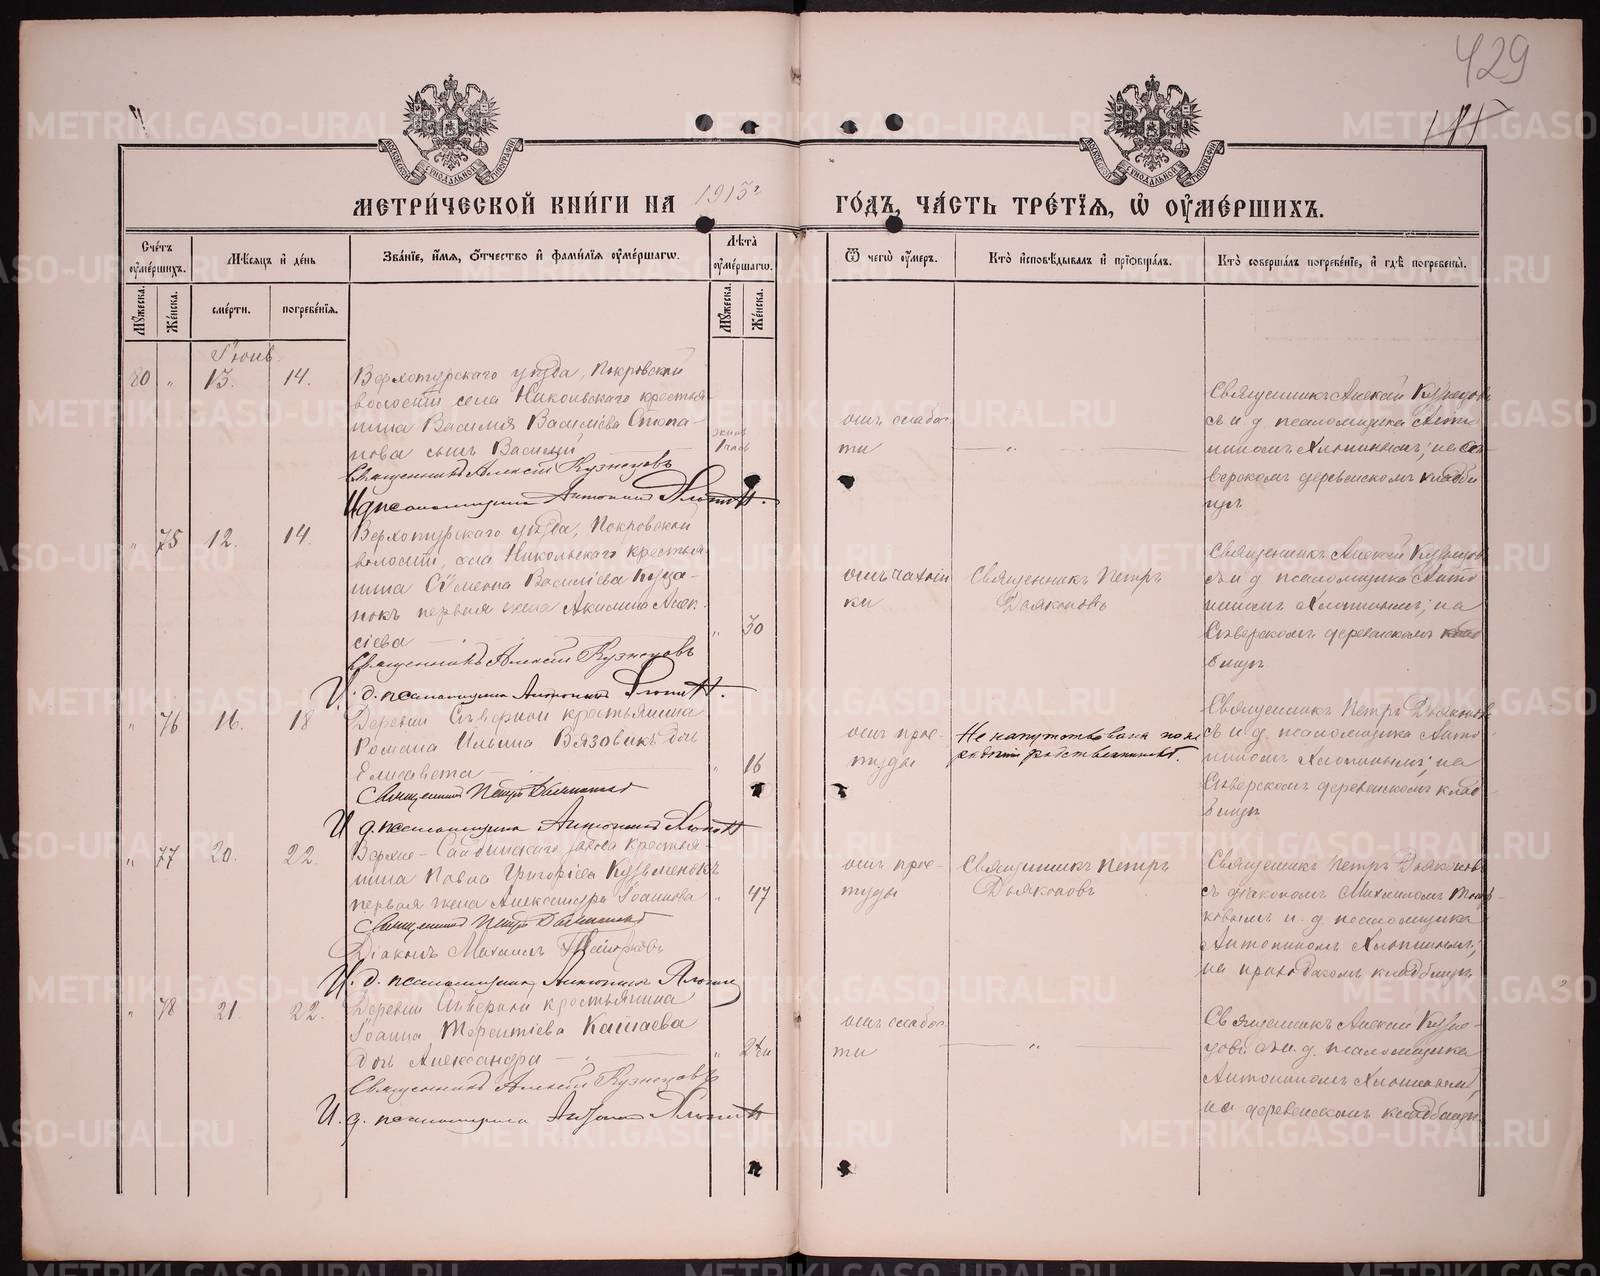 429
МЕТРИ́ЧЕСКОЙ КНИ́ГИ НА 1913 г ГО́ДЪ, ЧА́СТЬ ТРЕ́ТІѦ, Ѡ ОУ҆МЕ́РШИХЪ.
Сче́тъ оу҆ме́ршихъ.
Мѣ́сѧцъ и҆ де́нь
Зва́нїе, и҆́мѧ, ѻ҆́тчество и҆ фами́лїѧ оу҆ме́ршагѡ.
Лѣ́та оу҆ме́ршагѡ.
Ѿ чегѡ̀ оу҆́меръ.
Кто̀ и҆сповѣ́дывалъ и҆ прїѡбща́лъ.
Кто̀ соверша́лъ погребе́нїе, и҆ гдѣ̀ погребены̀.
Мꙋ́жеска.
Же́нска.
сме́рти.
погребе́нїѧ.
Мꙋ́жеска.
Же́нска.
Іюнь
80 " 13. 14.
Верхотурскаго уѣзда, Покровской
волости села Никольскаго крестья-
нина Василія Васильева
сынъ Василій
1 часъ
Священникъ Алексій Кузнецовъ
И д псаломщика Антонинъ Хлопин
отъ слабос-
ти
"
Священникъ Алексій Кузнецовъ
съ и д псаломщика Анто-
ниномъ Хлопинымъ; на Сѣ-
верскомъ деревенскомъ кладби
щѣ
" 75 12. 14.
Верхотурскаго уѣзда, Покровской
волости, села Никольскаго крестья
нина Сѵмеона Васильева
первая жена Акилина Алек-
сіева
" 30
Священникъ Алексій Кузнецовъ
И. д. псаломщика Антонинъ Хлопин.
отъ чахот
ки
Священникъ Петръ
Дьяконовъ
Священникъ Алексій Кузнецовъ
съ и д псаломщика Анто
ниномъ Хлопинымъ; на
Сѣверскомъ деревенскомъ клад
бищѣ
" 76 16. 18
Деревни Сѣверной крестьянина
Романа Ильина Вязовикъ дочь
Елисавета
" 16
Священникъ Петръ Дьяконовъ
И д. псаломщика Антонинъ Хлопин
отъ прос-
туды
Не напутствована по не
радѣнію родственниковъ.
Священникъ Петръ Дьяконовъ
съ и д. псаломщика Анто-
ниномъ Хлопинымъ; на
Сѣверскомъ деревенскомъ клад
бищѣ
" 77 20. 22.
Верхне- завода крестья-
нина Павла Григоріева Кузьменокъ
первая жена Александра Іоаннова
" 47
Священникъ Петръ Дьяконовъ
Діаконъ Михаилъ
И. д. псаломщика Антонинъ Хлопин
отъ прос-
туды
Священникъ Петръ
Дьяконовъ
Священникъ Петръ Дьяконовъ
съ діакономъ Михаиломъ
и. д псаломщика
Антониномъ Хлопинымъ;
на приходскомъ кладбищѣ
" 78 21. 22.
Деревни Сѣверной крестьянина
Іоанна Терентіева Кашаева
дочь Александра
"
Священникъ Алексій Кузнецовъ
И. д. псаломщика Антонинъ Хлопин
отъ слабос-
ти
"
Священникъ Алексій Кузне-
цовъ съ и. д. псаломщика
Антониномъ Хлопинымъ;
на деревенскомъ кладбищѣ
METRIKI.GASO-URAL.RU